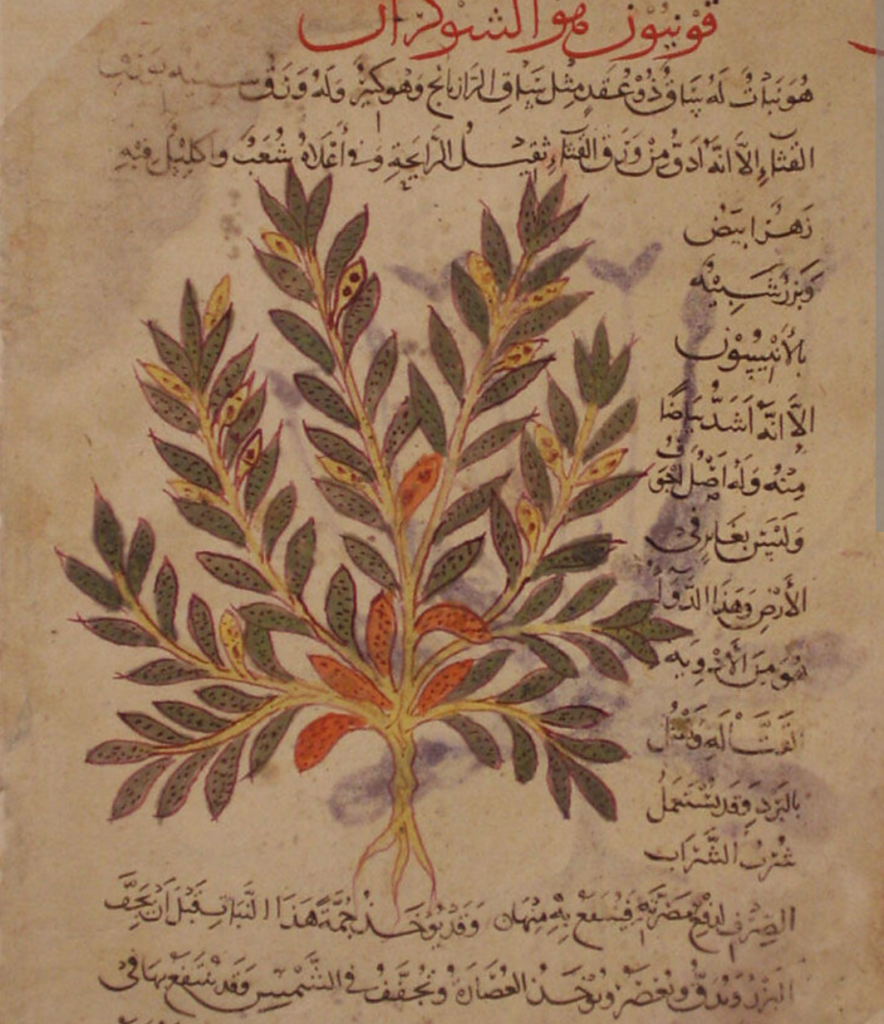 قونيون هو الشوكران
هو نبات له ساق ذو عقد مثل ساق الرازيانج وهو كبير وله ورق شبيه بورق
القثاء الا انه ادق من ورق القثاء ثقيل الرايحة وفي أعلاه شعب واكليل فيه
زهر ابيض
وبزر شبيه
بالأنيسون
الا انه اشد بياضا
منه وله اصل اجوف
وليس بغاير في
الأرض وهذا الدوآ
هو من الأدوية
القتاله ويقتل
بالبرد وقد يستعمل
شرب الشراب
الصرف لدفع مضرته فينتفع به منها وقد يوخذ جمة هذا النبات قبل ان يجف
البزر ويدق ويعصر ويوخذ العصارة ويجفف في الشمس وقد ينتفع بها في